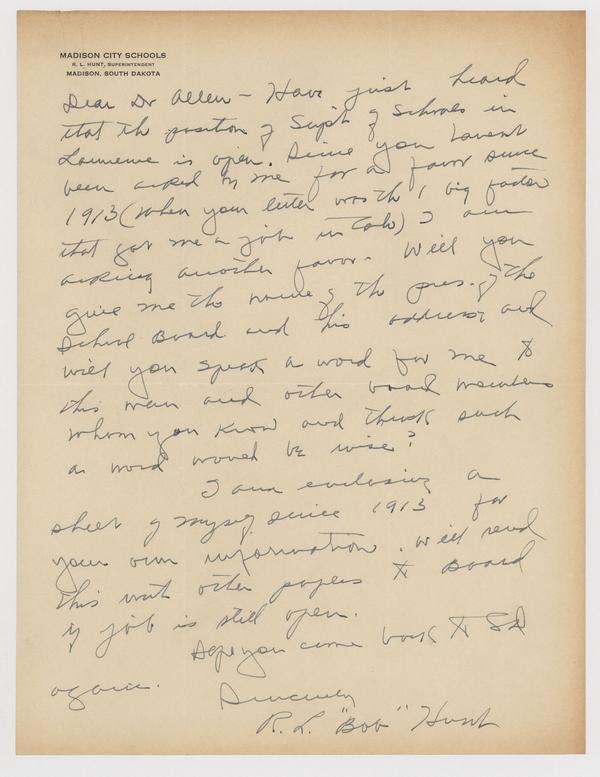 MADISON CITY SCHOOLS
R. L. HUNT, SUPERINTENDENT
MADISON, SOUTH DAKOTA
Dear Dr Allen - Have just heard
that the position of Sup't of Schools in
Lawrence is open. Since you havent
been asked by me for a favor since
1913 (when your letter was the 1 big factor
that got me a job in Colo) I am
asking another favor. Will you
give me the name of the pres. of the
School Board and his address and
will you speak a word for me to
this man and other board members
whom you know and think such
a word would be wise?
I am enclosing a
sheet of myself since 1913 for
your own information. Will send
this with other papers to Board
if job is still open.
Hope you come back to SD
again.
Sincerely
R. L. "Bob" Hunt